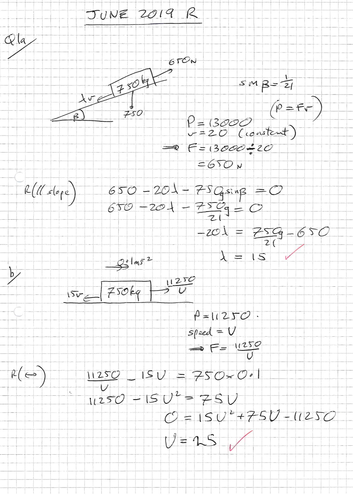 JUNE 2019 R
Q1a
650N
750kg
λv
750
β
sin β = 1/21
(P = Fv)
P = 13000
v = 20 (constant)
⇒ F = 13000 ÷ 20
= 650N
R(// slope) 650 - 20λ - 750g sinβ = 0
650 - 20λ - 750g/21 = 0
-20λ = 750g/21 - 650
λ = 15 ✓
b
0.1ms²
15v 750kg 11250/U
P = 11250.
speed = U
⇒ F = 11250/U
R(↔) 11250/U - 15U = 750×0.1
11250 - 15U² = 75U
0 = 15U² + 75U - 11250
U = 25 ✓